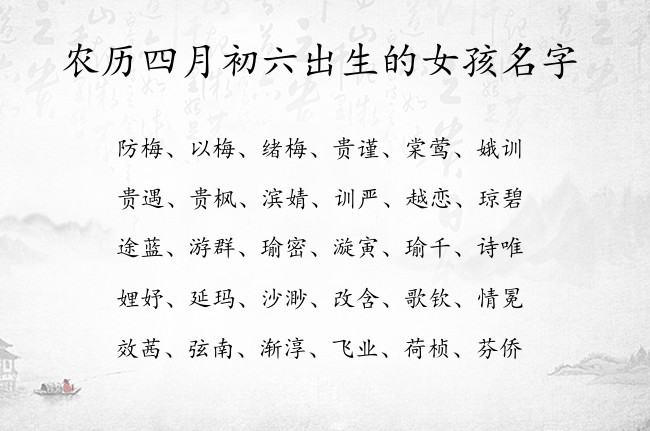 农历四月初六出生的女孩名字
防梅、以梅、绪梅、贵谨、棠莺、娥训
贵遇、贵枫、滨婧、训严、越恋、琼碧
途蓝、游群、瑜密、漩寅、瑜千、诗唯
娌妤、延玛、沙渺、改含、歌钦、情冕
效茜、弦南、渐淳、飞业、荷桢、芬侨